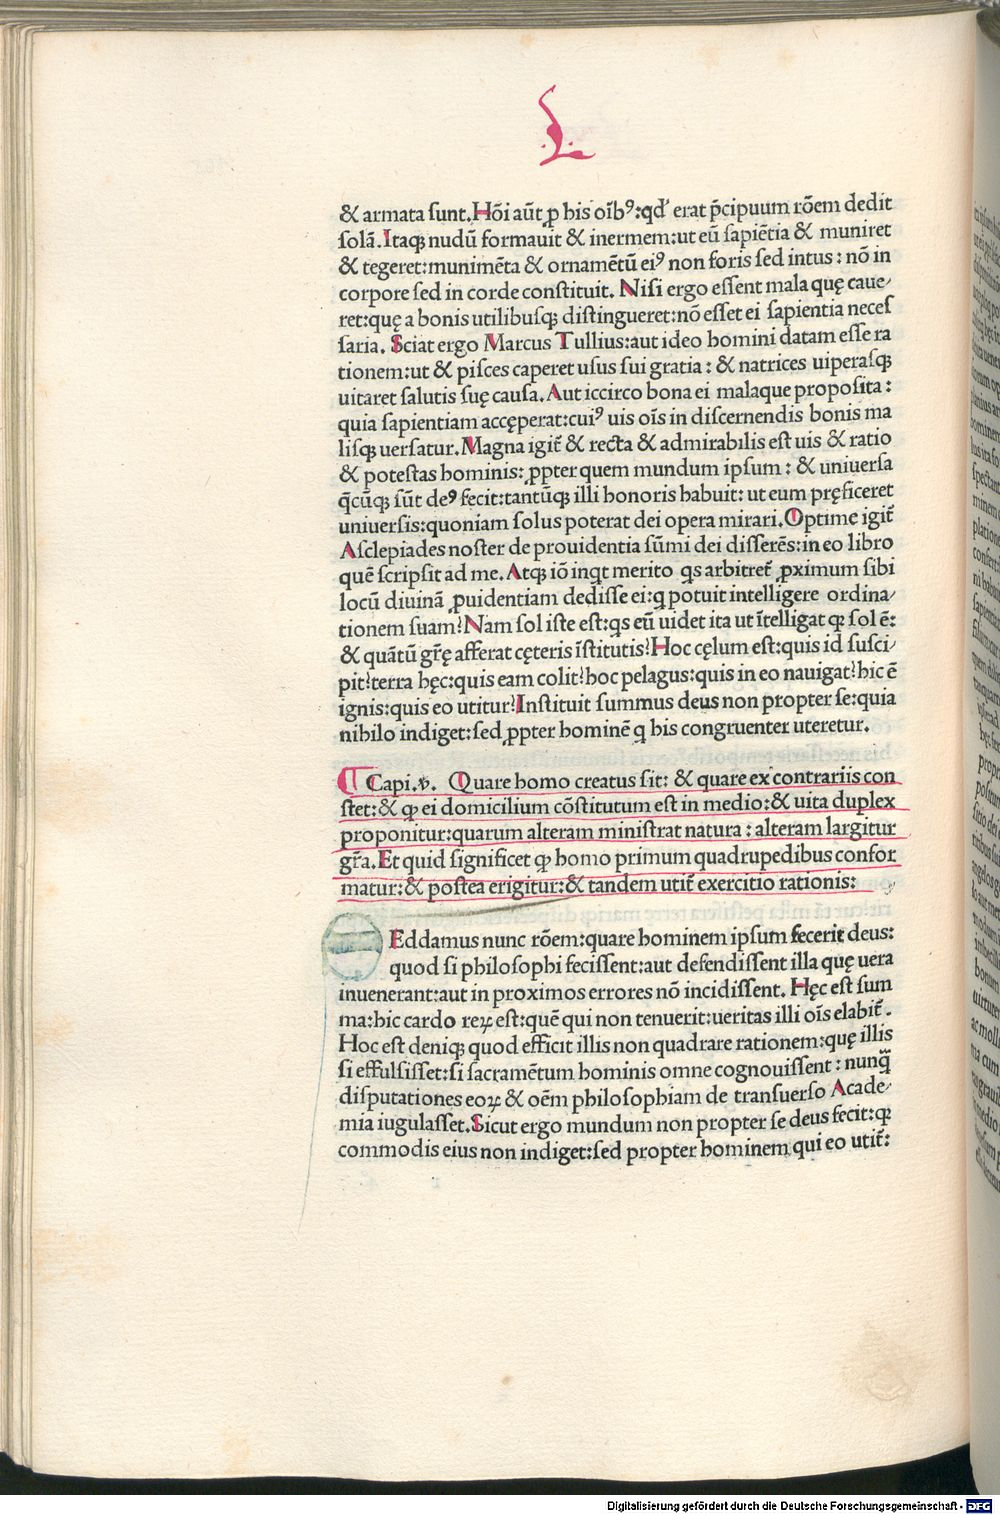 L
& armata sunt. Hōi aūt ꝓ his oīb⁹: qd' erat p̄cipuum rōem dedit
solā. Itaqꝫ nudū formauit & inermem: ut eū sapiētia & muniret
& tegeret: munimēta & ornamētū ei⁹ non foris sed intus: nō in
corpore sed in corde constituit. Nisi ergo essent mala quę caue/
ret: quę a bonis utilibusqꝫ distingueret: nō esset ei sapientia neces
saria. Sciat ergo Marcus Tullius: aut ideo homini datam esse ra
tionem: ut & pisces caperet usus sui gratia: & natrices uiperasqꝫ
uitaret salutis suę causa. Aut iccirco bona ei malaque proposita:
quia sapientiam accęperat: cui⁹ uis oīs in discernendis bonis ma
lisqꝫ uersatur. Magna igit̄ & recta & admirabilis est uis & ratio
& potestas hominis: ꝓpter quem mundum ipsum: & uniuersa
q̄cūqꝫ sūt de⁹ fecit: tantūqꝫ illi honoris habuit: ut eum pręficeret
uniuersis: quoniam solus poterat dei opera mirari. Optime igit̄
Asclepiades noster de prouidentia sūmi dei disserēs: in eo libro
quē scripsit ad me. Atqꝫ iō inqt merito qs arbitret̄ ꝓximum sibi
locū diuinā ꝓuidentiam dedisse ei: q potuit intelligere ordina/
tionem suam? Nam sol iste est: qs eū uidet ita ut ītelligat ꝙ sol ē:
& quātū gr̄ę afferat cęteris īstitutis? Hoc cęlum est: quis id susci/
pit? terra hęc: quis eam colit? hoc pelagus: quis in eo nauigat? hic ē
ignis: quis eo utitur? Instituit summus deus non propter se: quia
nihilo indiget: sed ꝓpter hominē q his congruenter uteretur.
¶ Capi. v. Quare homo creatus sit: & quare ex contrariis con
stet: & ꝙ ei domicilium cōstitutum est in medio: & uita duplex
proponitur: quarum alteram ministrat natura: alteram largitur
gr̄a. Et quid significet ꝙ homo primum quadrupedibus confor
matur: & postea erigitur: & tandem utit̄ exercitio rationis:
Eddamus nunc rōem: quare hominem ipsum fecerit deus:
quod si philosophi fecissent: aut defendissent illa quę uera
inuenerant: aut in proximos errores nō incidissent. Hęc est sum
ma: hic cardo reꝝ est: quē qui non tenuerit: ueritas illi oīs elabit̄.
Hoc est deniqꝫ quod efficit illis non quadrare rationem: quę illis
si effulsisset: si sacramētum hominis omne cognouissent: nunq̄
disputationes eoꝝ & oēm philosophiam de transuerso Acade/
mia iugulasset. Sicut ergo mundum non propter se deus fecit: ꝙ
commodis eius non indiget: sed propter hominem qui eo utit̄:
Digitalisierung gefördert durch die Deutsche Forschungsgemeinschaft - DFG